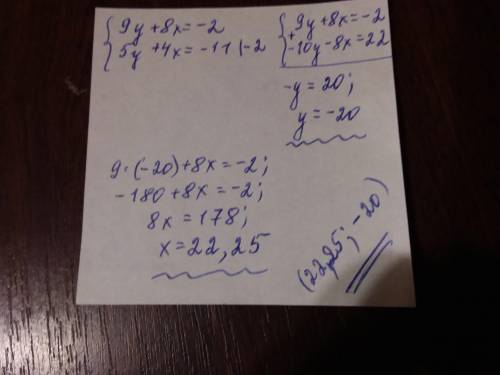 {9y + 8x = -2
{5y + 4x = -11 |-2
{9y + 8x = -2
+
{-10y - 8x = 22
-y = 20;
y = -20
9·(-20) + 8x = -2;
-180 + 8x = -2;
8x = 178;
x = 22,25
(22,25; -20)